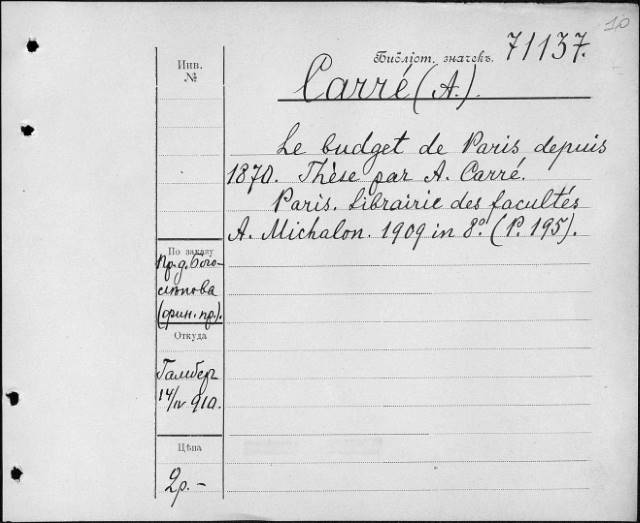 10
Библіот. значекъ.
71137.
Инв.
№
Carré (A.).
Le budget de Paris depuis
1870. Thèse par A. Carré.
Paris. Librairie des facultés
A. Michalon. 1909 in 8º. (P. 195).
По заказу
Пр. д. Бого-
лѣпова
(фин. пр.).
Откуда
Гамбер
14/IV 910.
Цѣна
2р.-